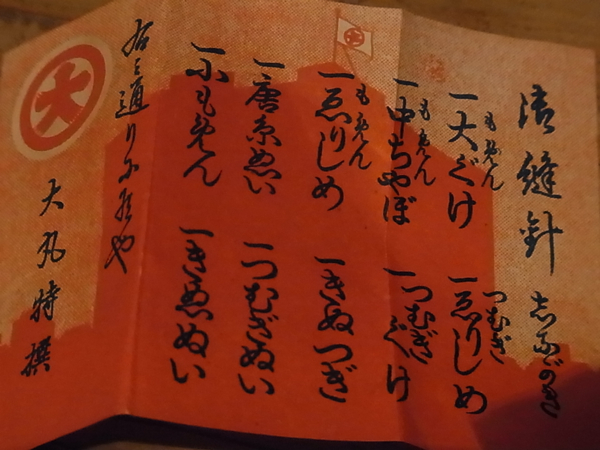 御縫針 志ながき
もめん
一大ぐけ
つむぎ
一ゑりしめ
もめん
一中ちやぼ
つむぎ
一ぐけ
もめん
一ゑりしめ
一きぬつぎ
一唐糸ぬい
一つむぎぬい
一ふもめん
一きぬぬい
右之通り
大
大丸特撰